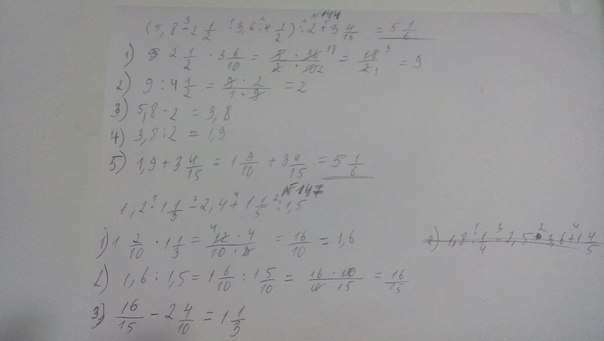 №144
(5,8 - 2 1/2 · 3,6 : 4 1/2) : 2 + 3 4/15 = 5 1/6
1) 2 1/2 · 3 6/10 = 18/2 = 9
2) 9 : 4 1/2 = 9 · 2 / 1 · 9 = 2
3) 5,8 - 2 = 3,8
4) 3,8 : 2 = 1,9
5) 1,9 + 3 4/15 = 1 9/10 + 3 4/15 = 5 1/6
№147
1,2 · 1 1/3 - 2,4 + 1 1/3 : 1,5
1) 1 2/10 · 1 1/3 = 12 · 4 / 10 · 3 = 16/10 = 1,6
2) 1,6 : 1,5 = 1 6/10 : 1 5/10 = 16 · 10 / 10 · 15 = 16/15
3) 16/15 - 2 4/10 = 1 1/3